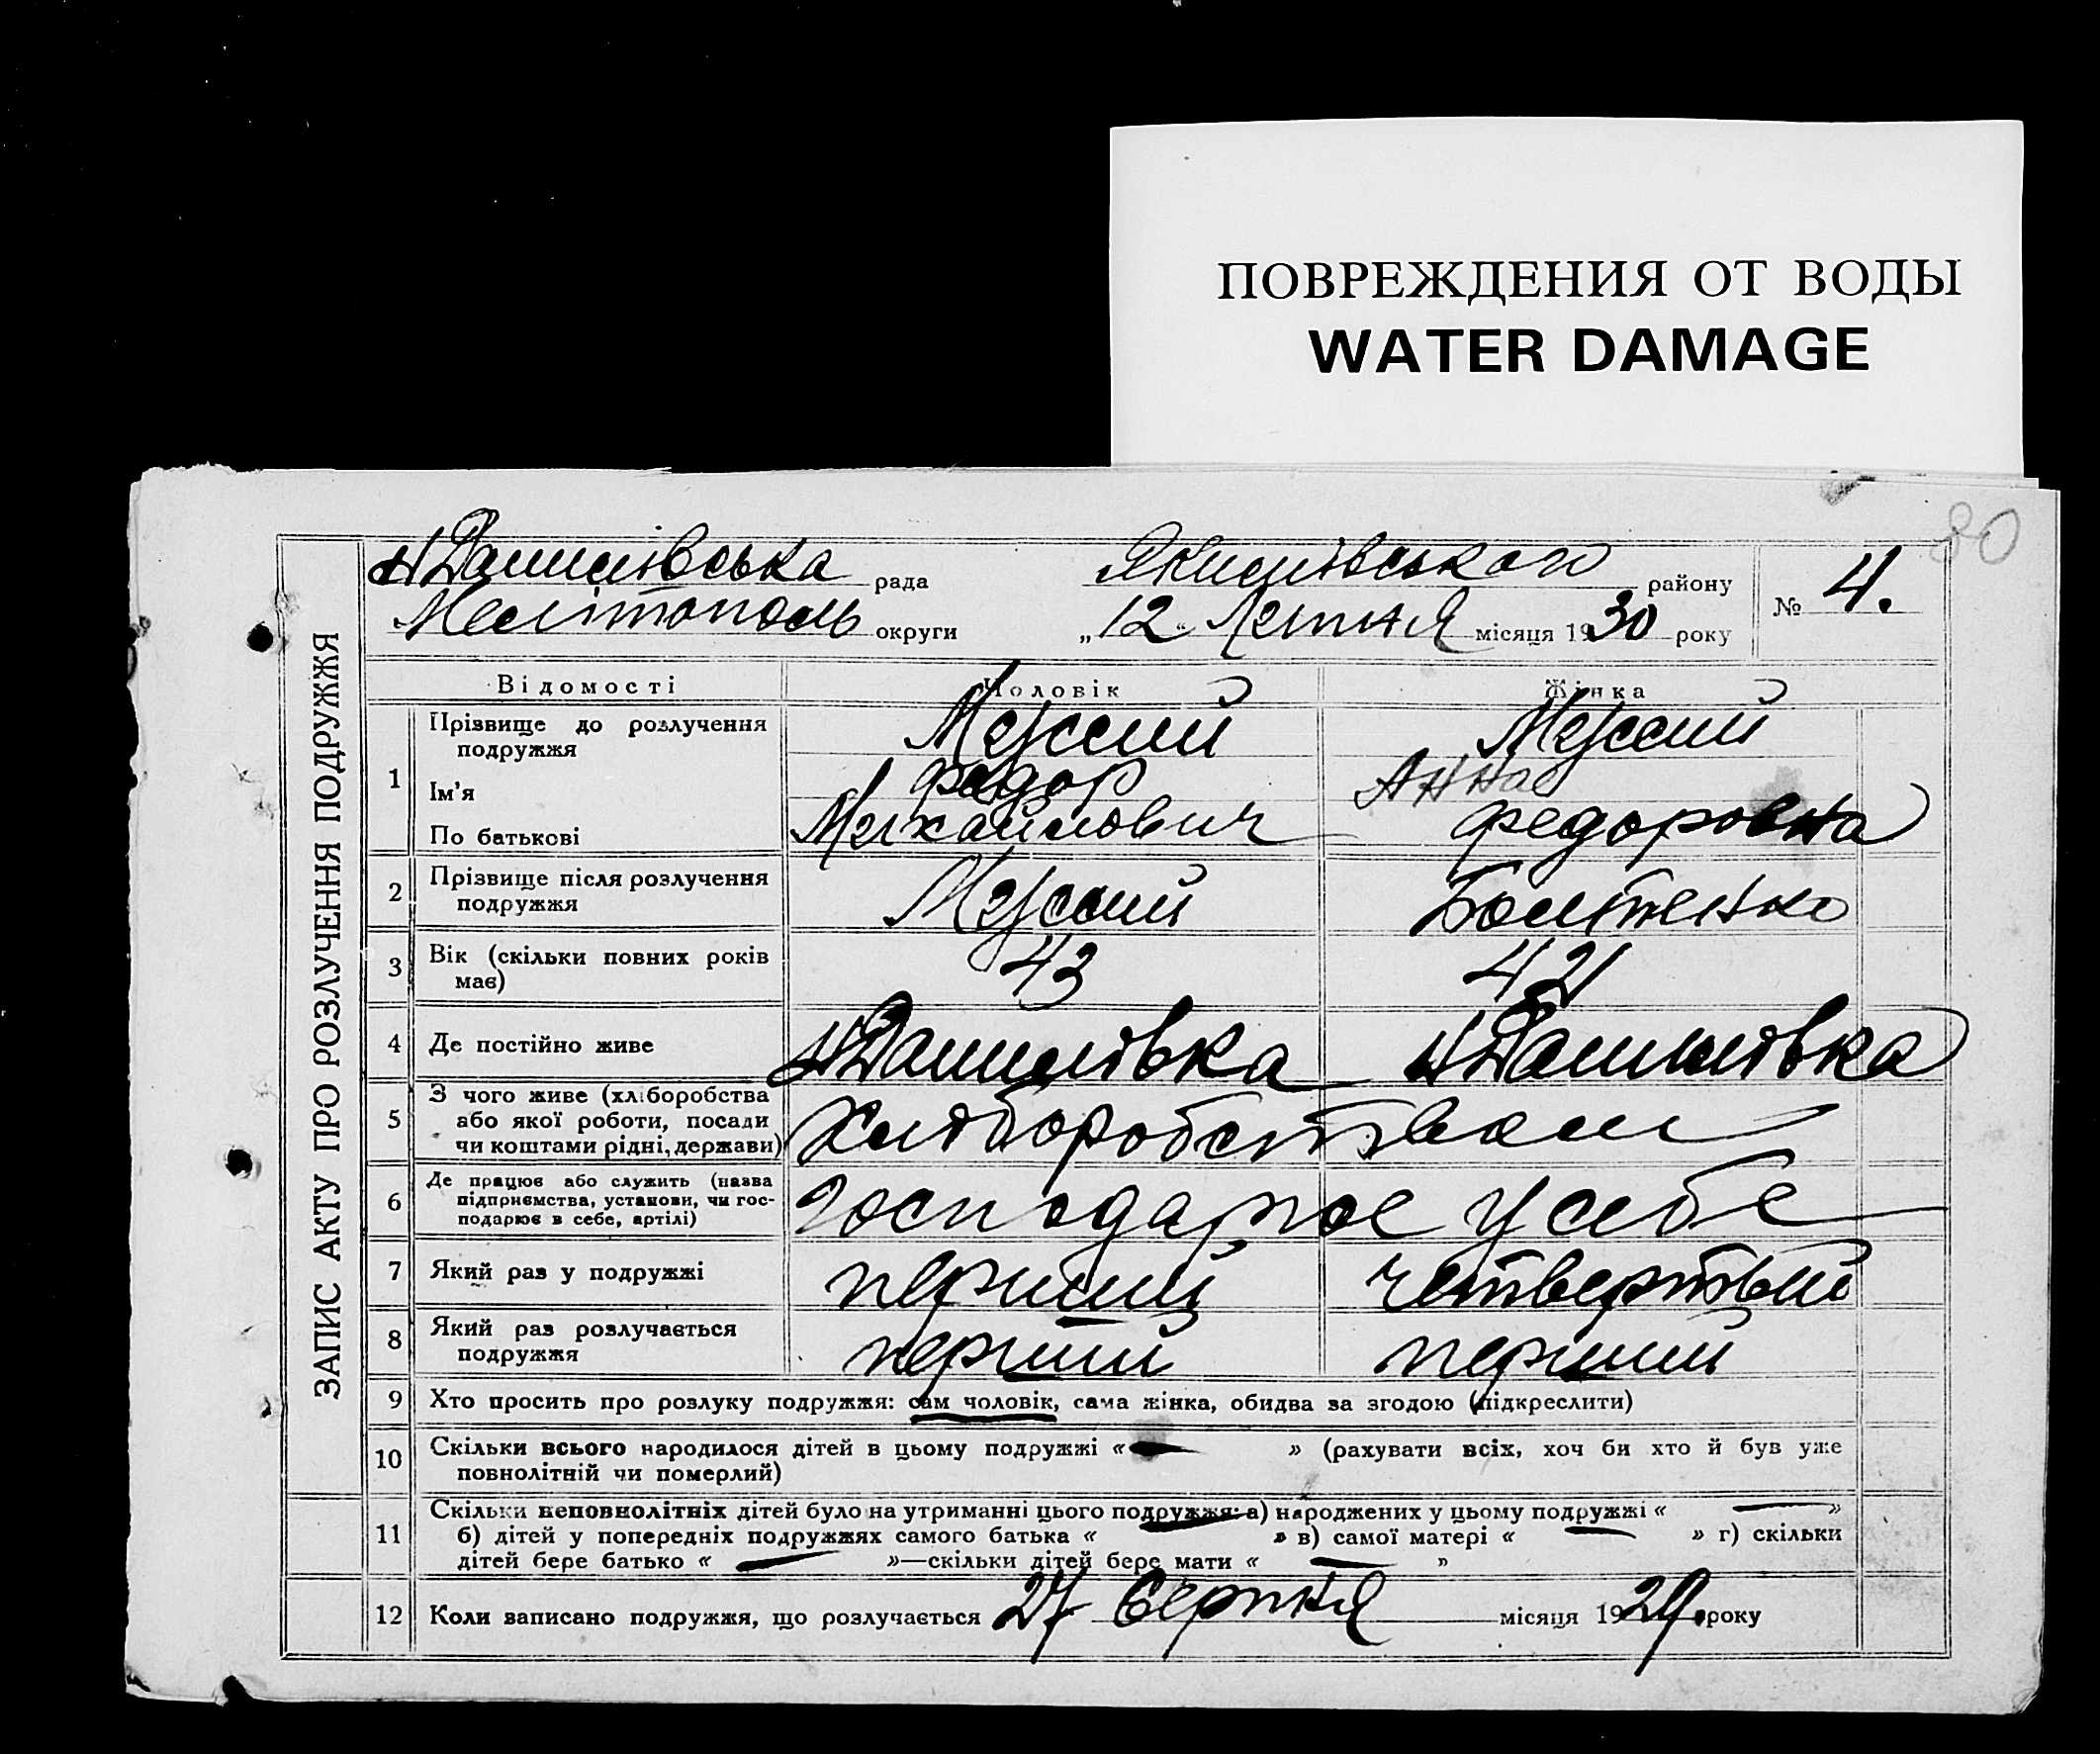 ПОВРЕЖДЕНИЯ ОТ ВОДЫ
WATER DAMAGE
80
ЗАПИС АКТУ ПРО РОЗЛУЧЕННЯ ПОДРУЖЖЯ
Н Данилівська рада Якимівського району № 4.
Мелітополь округи „12“ Липня місяця 1930 року
Відомості Чоловік Жінка
1 Прізвище до розлучення подружжя
Ім'я Федор Анна
По батькові Михайлович Федоровна
2 Прізвище після розлучення подружжя
3 Вік (скільки повних років має) 43 42
4 Де постійно живе Н Данилівка Н Данилівка
5 З чого живе (хліборобства або якої роботи, посади чи коштами рідні, держави) Хліборобством
6 Де працює або служить (назва підприємства, установи, чи господарює в себе, артілі) господарює у себе
7 Який раз у подружжі перший четвертый
8 Який раз розлучається подружжя перший перший
9 Хто просить про розлуку подружжя: сам чоловік, сама жінка, обидва за згодою (підкреслити)
10 Скільки всього народилося дітей в цьому подружжі « — » (рахувати всіх, хоч би хто й був уже
повнолітній чи померлий)
11 Скільки неповнолітніх дітей було на утриманні цього подружжя: а) народжених у цьому подружжі « — »
б) дітей у попередніх подружжях самого батька « » в) самої матері « — » г) скільки
дітей бере батько « — »—скільки дітей бере мати « — »
12 Коли записано подружжя, що розлучається 27 Серпня місяця 1929. року